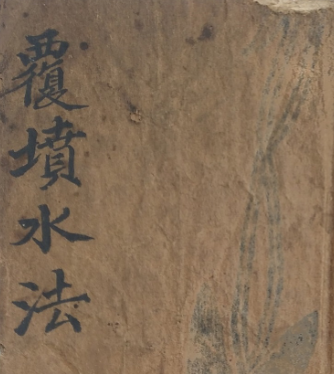 覆墳水法